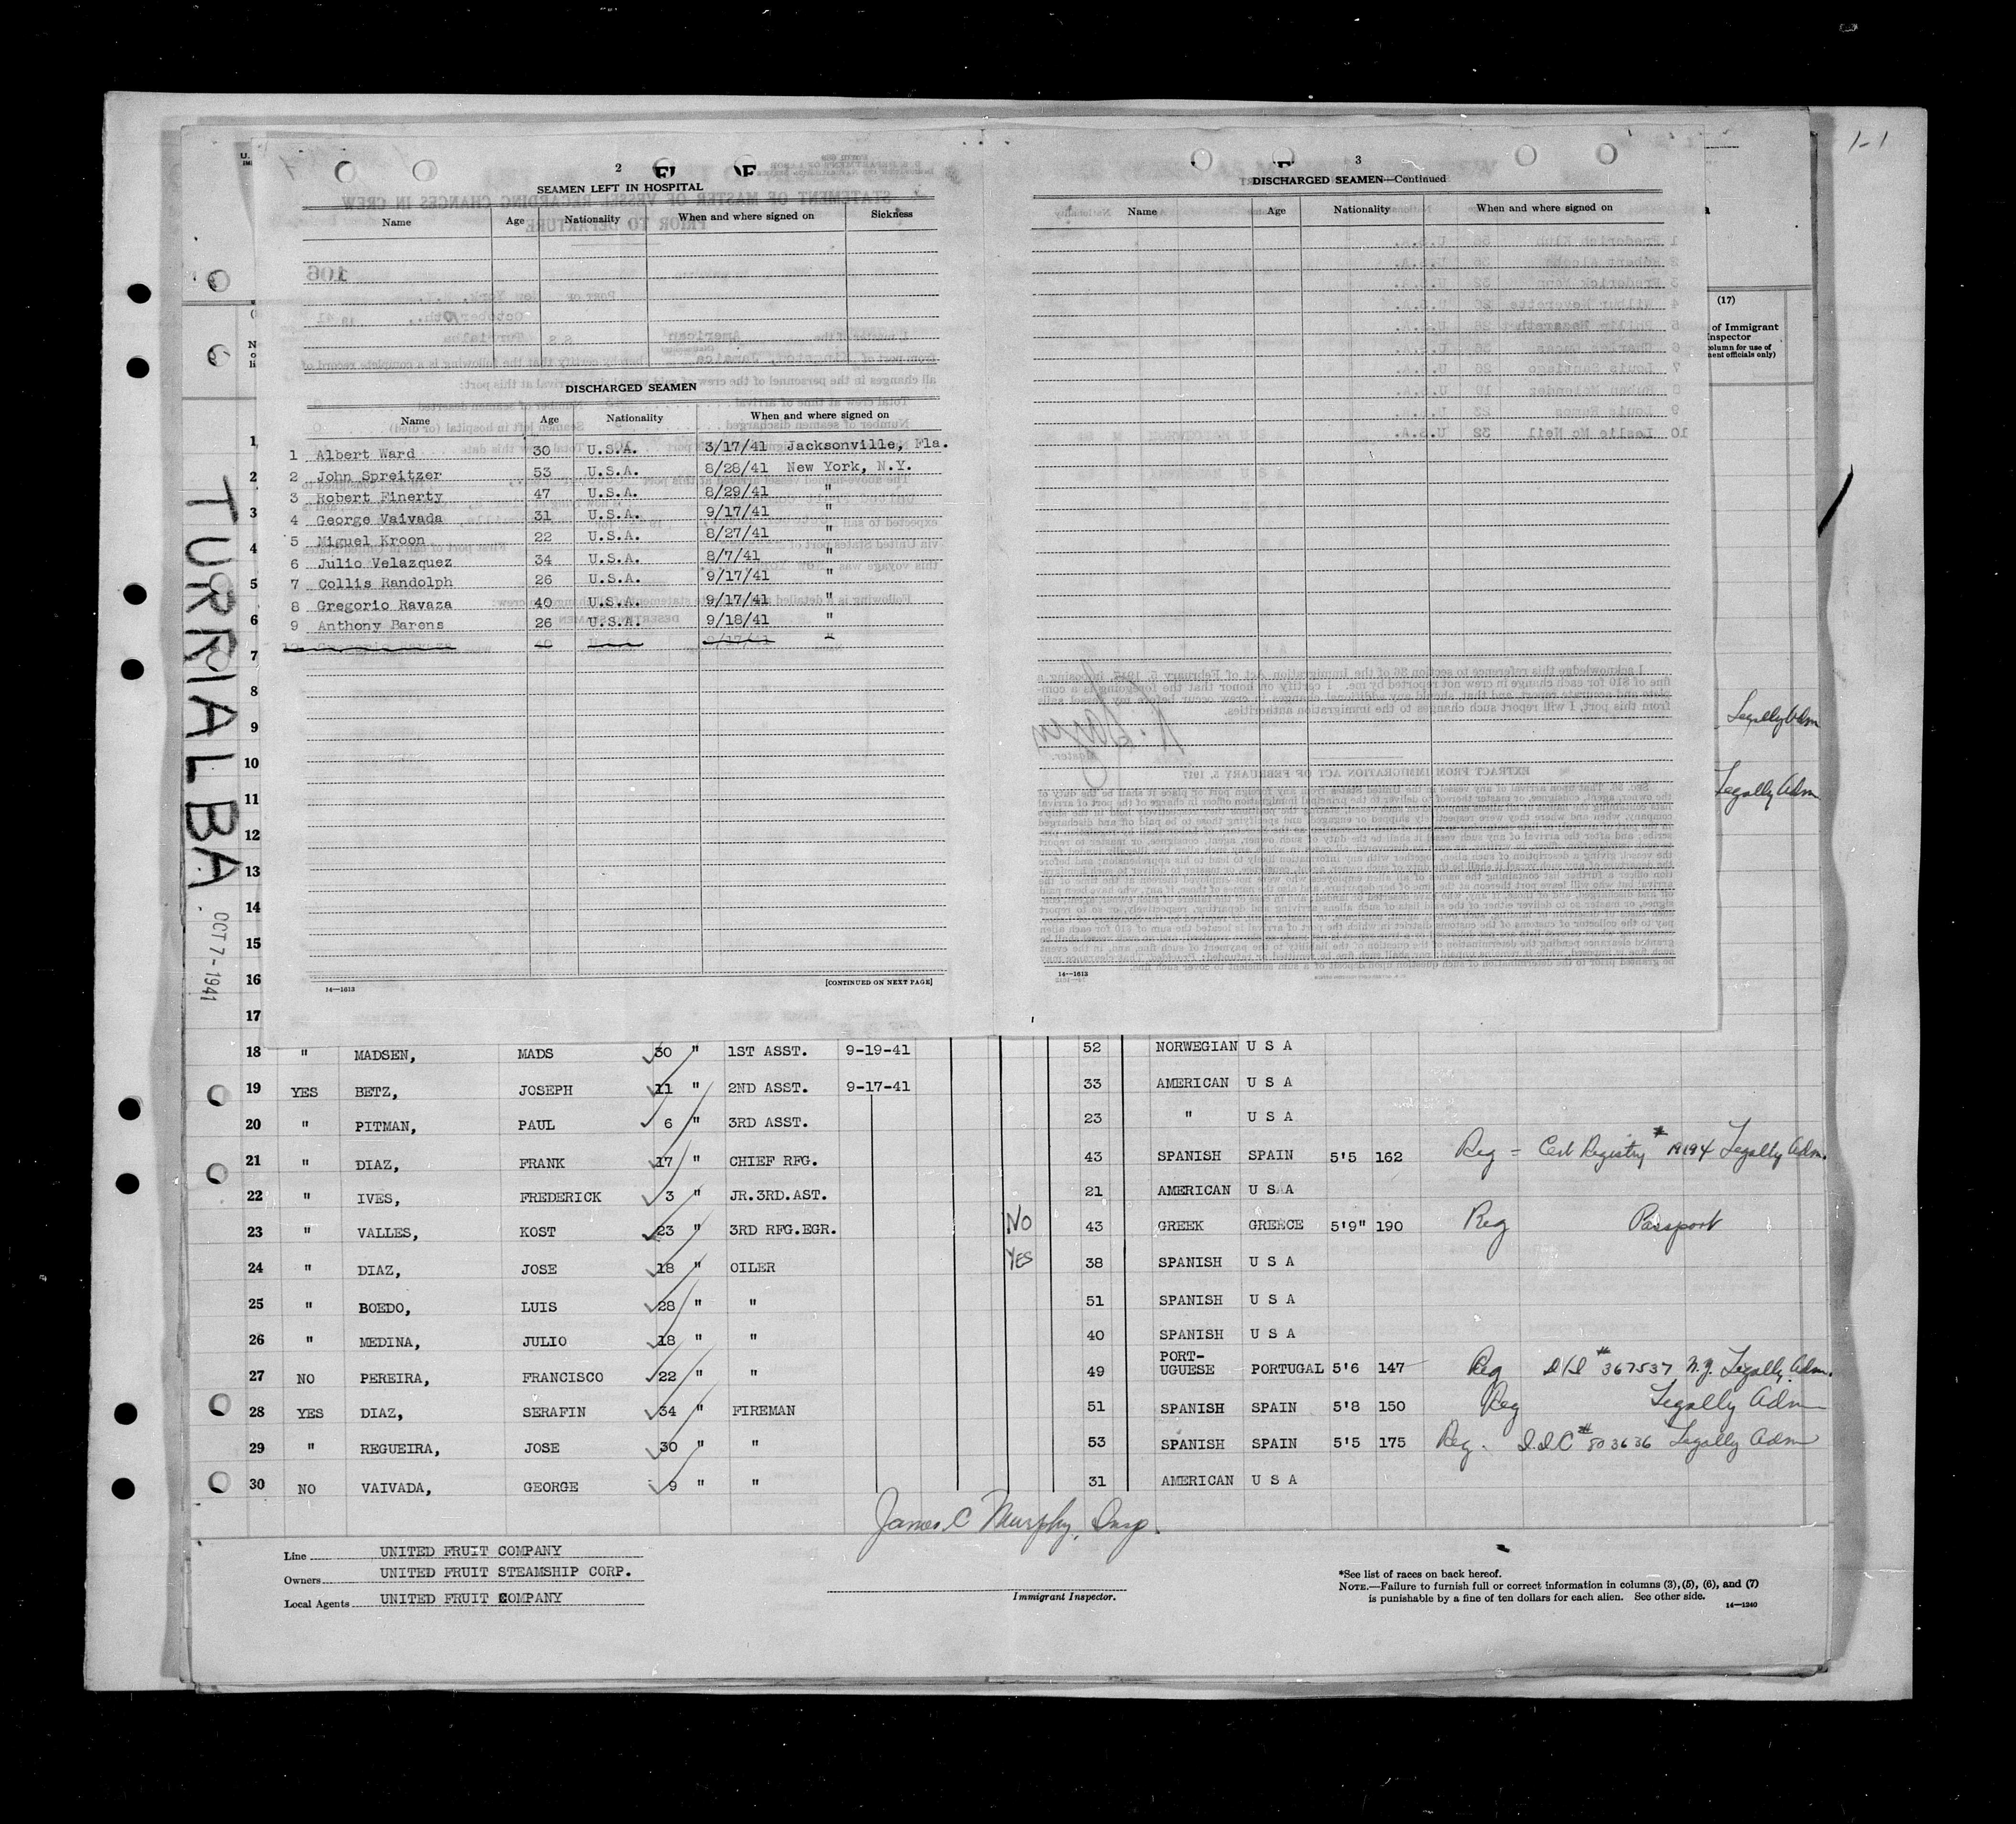 1-1
2
SEAMEN LEFT IN HOSPITAL
Name Age Nationality When and where signed on Sickness
DISCHARGED SEAMEN
Name Age Nationality When and where signed on
1 Albert Ward 30 U.S.A. 3/17/41 Jacksonville, Fla.
2 John Spreitzer 53 U.S.A. 8/28/41 New York, N.Y.
3 Robert Finerty 47 U.S.A. 8/29/41 "
4 George Vaivada 31 U.S.A. 9/17/41 "
5 Miguel Kroon 22 U.S.A. 8/27/41 "
6 Julio Velazquez 34 U.S.A. 8/7/41 "
7 Collis Randolph 26 U.S.A. 9/17/41 "
8 Gregorio Ravaza 40 U.S.A. 9/17/41 "
9 Anthony Barens 26 U.S.A. 9/18/41 "
14—1613
[CONTINUED ON NEXT PAGE]
3
DISCHARGED SEAMEN—Continued
Name Age Nationality When and where signed on
14—1613
(17)
of Immigrant
Inspector
column for use of
ment officials only)
Legally Adm
Legally Adm
TURRIALBA
OCT 7-1941
1
2
3
4
5
6
7
8
9
10
11
12
13
14
15
16
17
18 " MADSEN, MADS 30 " 1ST ASST. 9-19-41 52 NORWEGIAN U S A
19 YES BETZ, JOSEPH 11 " 2ND ASST. 9-17-41 33 AMERICAN U S A
20 " PITMAN, PAUL 6 " 3RD ASST. 23 " U S A
21 " DIAZ, FRANK 17 " CHIEF RFG. 43 SPANISH SPAIN 5'5 162 Reg - Cert Registry # 19194 Legally Adm.
22 " IVES, FREDERICK 3 " JR.3RD.AST. 21 AMERICAN U S A
23 " VALLES, KOST 23 " 3RD RFG.EGR. NO 43 GREEK GREECE 5'9" 190 Reg Passport
24 " DIAZ, JOSE 18 " OILER YES 38 SPANISH U S A
25 " BOEDO, LUIS 28 " " 51 SPANISH U S A
26 " MEDINA, JULIO 18 " " 40 SPANISH U S A
27 NO PEREIRA, FRANCISCO 22 " " 49 PORT-UGUESE PORTUGAL 5'6 147 Reg # 367537 N.Y. Legally Adm.
28 YES DIAZ, SERAFIN 34 " FIREMAN 51 SPANISH SPAIN 5'8 150 Reg Legally Adm
29 " REGUEIRA, JOSE 30 " " 53 SPANISH SPAIN 5'5 175 Reg. I.I.C # 803636 Legally Adm
30 NO VAIVADA, GEORGE 9 " " 31 AMERICAN U S A
James C Murphy, Insp.
Immigrant Inspector.
Line UNITED FRUIT COMPANY
Owners UNITED FRUIT STEAMSHIP CORP.
Local Agents UNITED FRUIT COMPANY
*See list of races on back hereof.
NOTE.—Failure to furnish full or correct information in columns (3), (5), (6), and (7)
is punishable by a fine of ten dollars for each alien. See other side.
14—1240